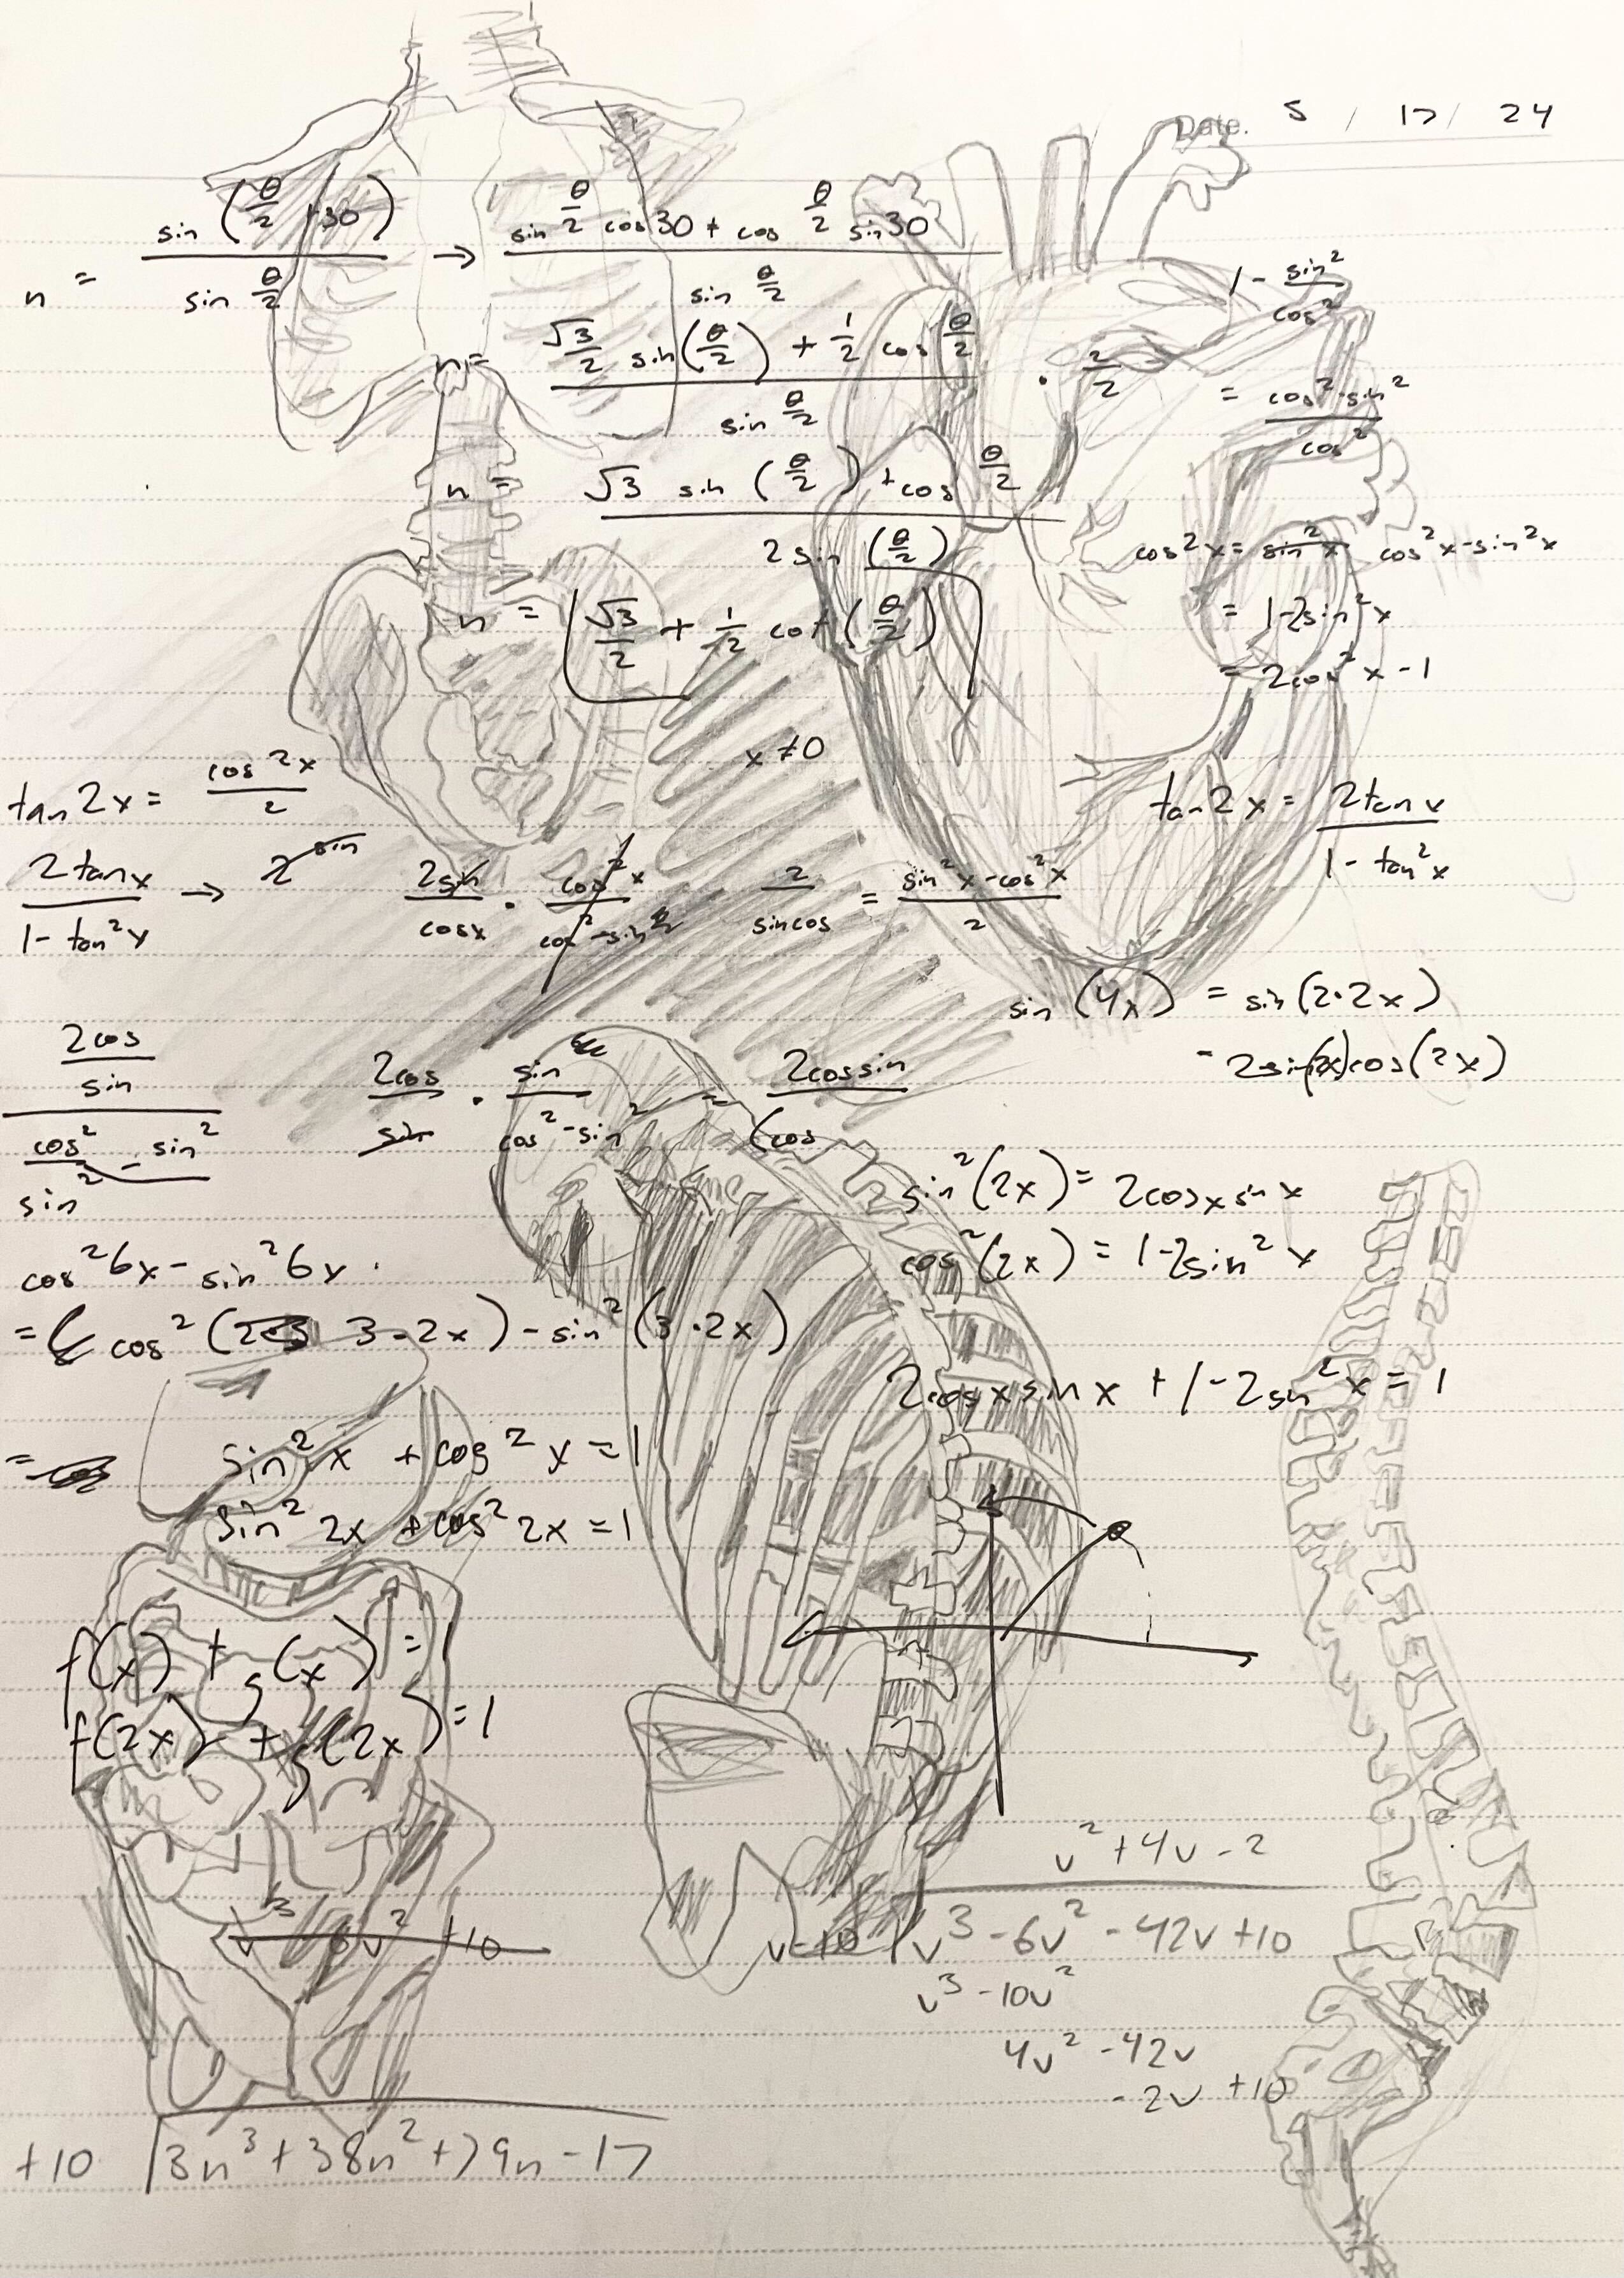 Date. 5 / 17 / 24
n = sin (θ/2 + 30) / sin θ/2 → sin θ/2 cos 30 + cos θ/2 sin 30 / sin θ/2
n = √3/2 sin(θ/2) + 1/2 cos θ/2 / sin θ/2 · 2/2
n = √3 sin (θ/2) + cos θ/2 / 2 sin (θ/2)
n = √3/2 + 1/2 cot (θ/2)
x ≠ 0
1 - sin²/cos²
= cos² - sin² / cos²
cos²x = sin²x cos²x - sin²x
= 1 - 2sin²x
= 2cos²x - 1
tan 2x = 2tanx / 1 - tan²x
tan 2x = cos 2x / 2
2tanx / 1 - tan²x → 2 sin
2sin / cosx · cos²x / cos² - sin²
2 / sin cos = sin²x - cos²x / 2
sin (4x) = sin (2·2x)
- 2 sin(2x) cos (2x)
2cos / sin / cos² - sin² / sin²
2cos / sin · sin² / cos² - sin² = 2cos sin / (cos
sin²(2x) = 2cosx sinx
cos²(2x) = 1 - 2sin²x
2cosx sinx + 1 - 2sin²x = 1
cos²6x - sin²6x.
= cos² ( 3·2x ) - sin² (3·2x)
= cos
sin²x + cos²x = 1
sin²2x + cos²2x = 1
f(x) + g(x) = 1
f(2x) + g(2x) = 1
v³ 6v² +10
v² + 4v - 2
v - 10 v³ - 6v² - 42v + 10
v³ - 10v²
4v² - 42v
- 2v + 10
+10 3n³ + 38n² + 79n - 17